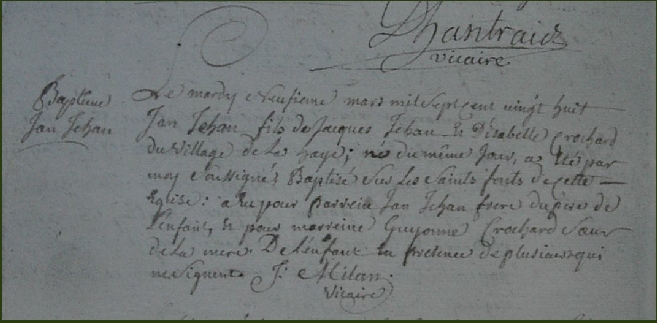 Dhantraid
vicaire
Bapteme
Jan Jehan
Le mardy neufieme mars mil sept cent vingt huit
Jan Jehan fils de Jacques Jehan & D'isabelle Crochard
du village de la haye; né du même jour, a été par
moy soussigné Baptisé sus les saints fonts de cette
Eglise: a eu pour parrein Jan Jehan frere du pere de
l'enfant, & pour marreine Guyonne Crochard sœur
de la mere De l'enfant en presence de plusieurs qui
ne signent J: Milan
vicaire